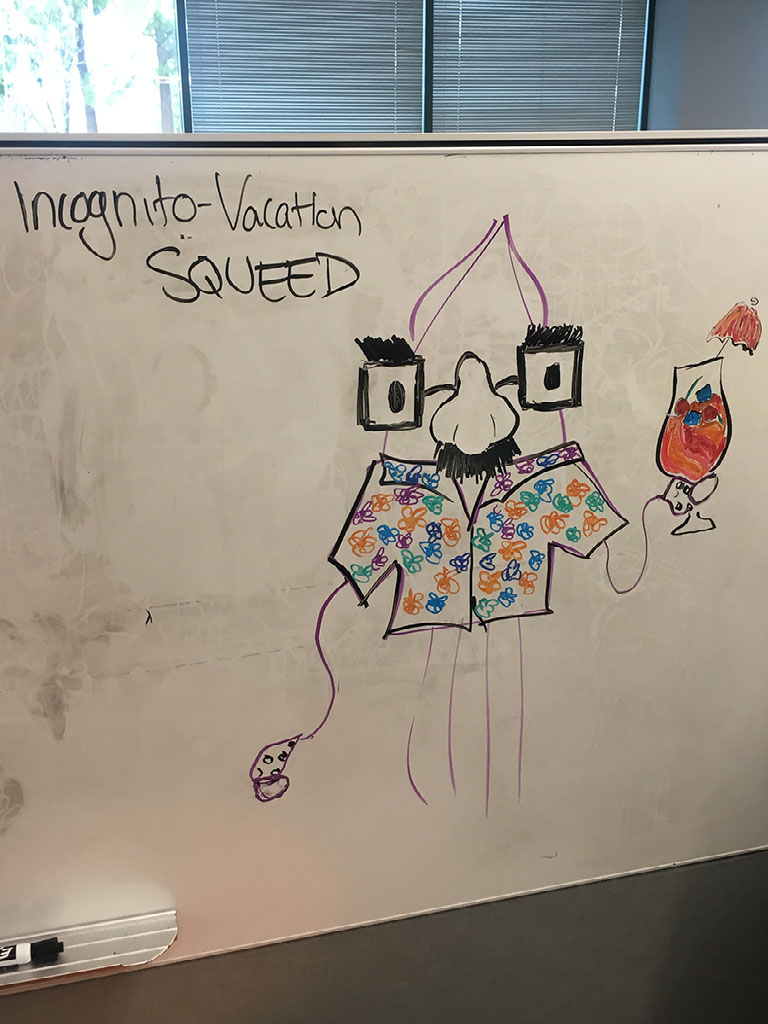 Incognito-Vacation
SQUEED